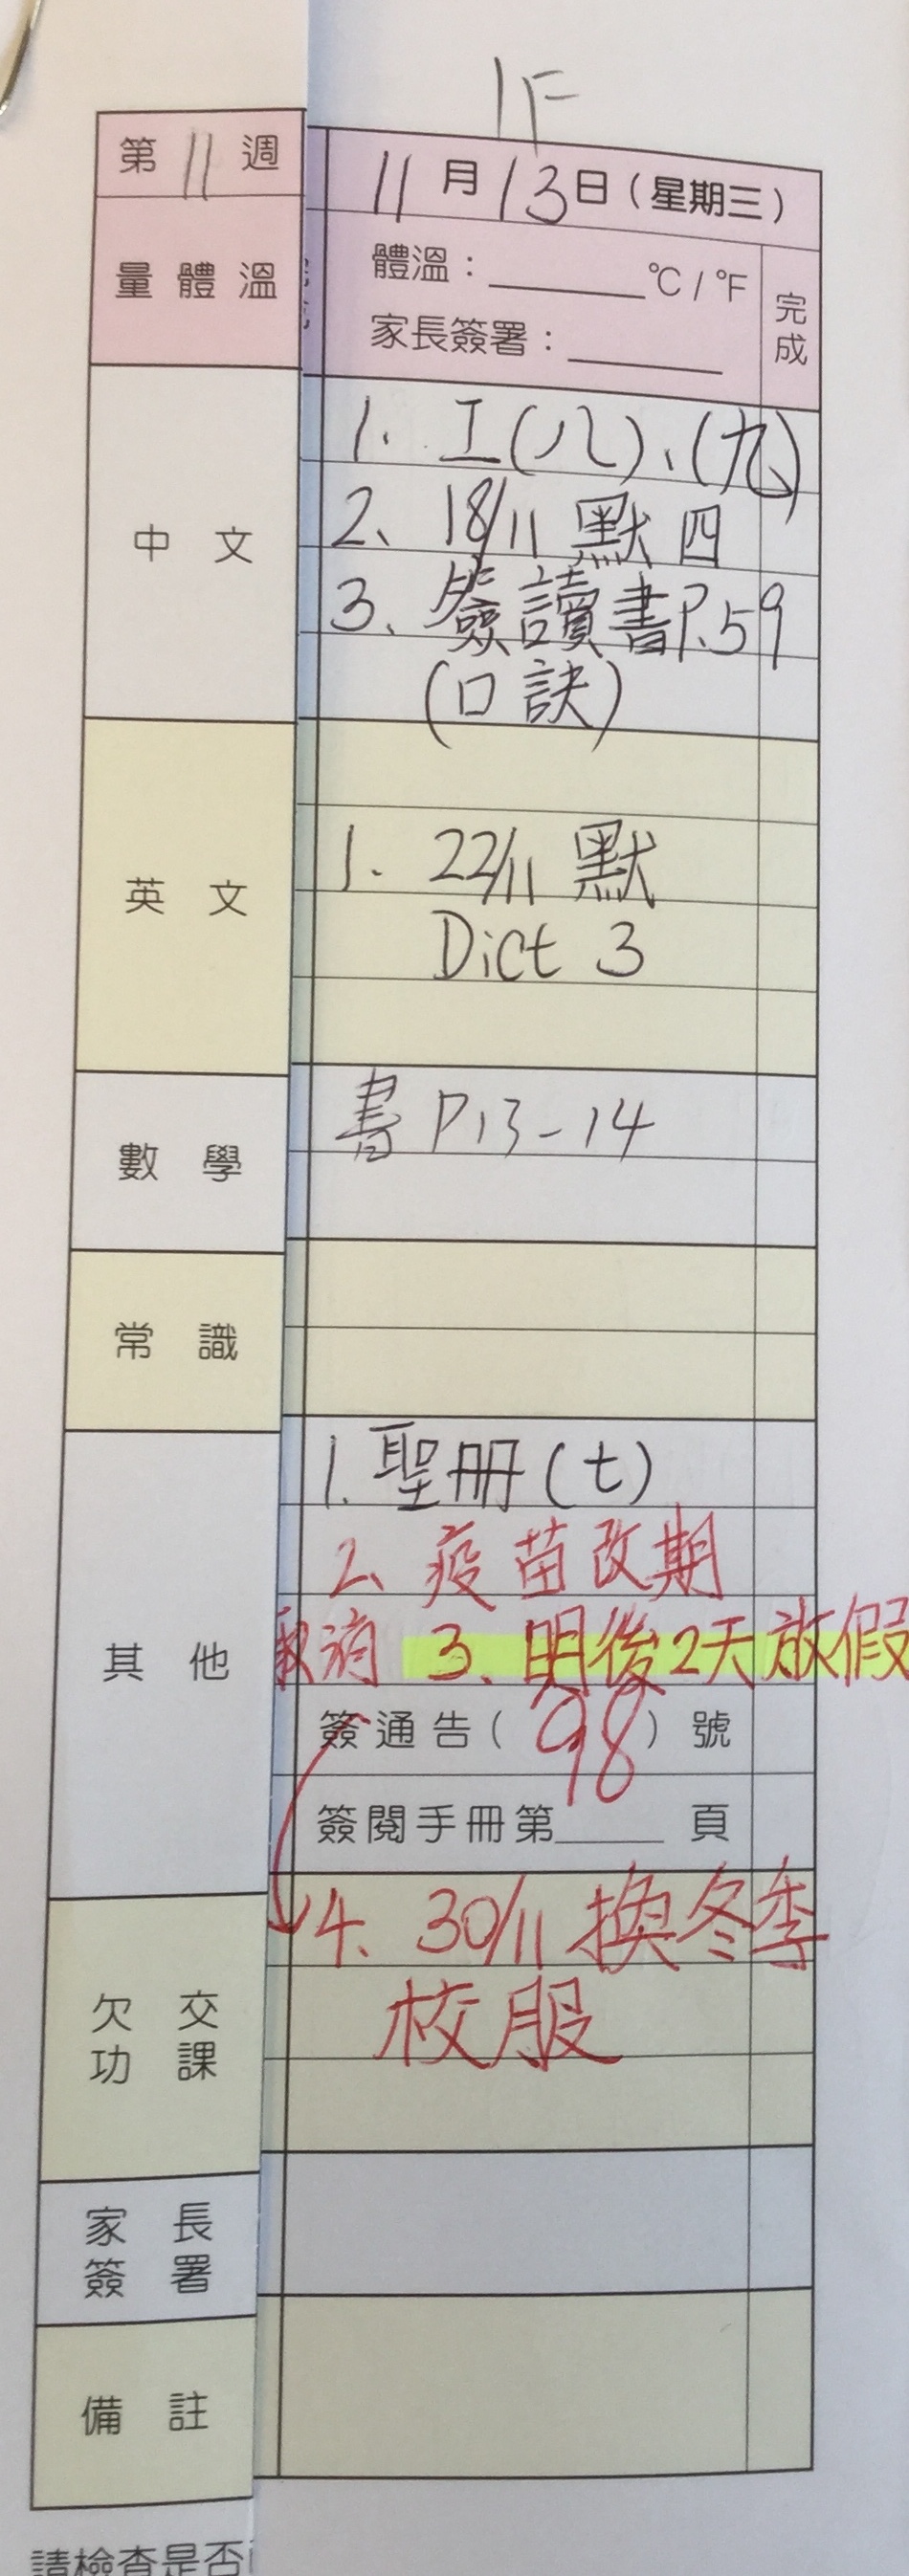 1F
第 11 週
11 月 13 日 ( 星期三 )
量體溫
體溫 : ______ °C / °F
家長簽署 : ______
完成
中文
1. 工(八)、(九)
2、 18/11 默四
3、 簽讀書P.59
(口訣)
英文
1. 22/11 默
Dict 3
數學
書 P13-14
常識
其他
1. 聖冊(七)
2、 疫苗改期
取消 3、明後2天放假
簽通告( 98 ) 號
簽閱手冊第______ 頁
欠交功課
4、 30/11 換冬季
校服
家長簽署
備註
請檢查是否